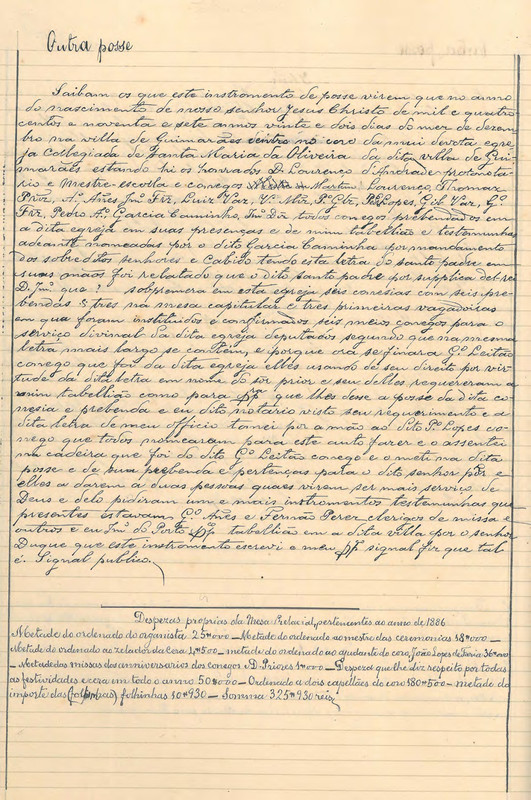 Outra posse
Saibam os que este instromento de posse virem que no anno
do nascimento de nosso senhor Jesus Christo de mil e quatro
centos e noventa e sete annos vinte e dois dias do mez de dezem
bro na villa de Guimarães dentro no coro da mui devota egre
ja Collegiada de Santa Maria da Oliveira da dita villa de Gui
marães estando hi os honrados D. Lourenço d'Andrade protonota
rio e Mestre-escolla e conegos Martim Lourenço, Thomaz
Luiz Vaz, Lopes, Gil Vaz, Gº
Frz, Pedro Aº Garcia Caminho, todos conegos prebendados em
a dita egreja em suas presenças e de mim tabellião e testemunhas
adeante nomeadas por o dito Garcia Caminha por mandamento
dos sobreditos senhores e Cabido tendo esta letra do santo padre em
suas mãos foi relatado que o dito santo padre por supplica del-rei
D. que ? sobpremera em esta egreja seis conesias com seis pre
bendas: tres na mesa capitular e tres primeiras vagadoiras
em qua foram instituidos e confirmados seis meios conegos para o
serviço divinal da dita egreja deputados segundo que na mesma
letra mais largo se contem, e porque ora se finara Gº Leitão
conego que foi da dita egreja elles usando de seu direito por vir
tude da dita letra em nome do sor prior e seu delles requereram a
mim tabellião como para que lhes desse a posse da dita co
nesia e prebenda e eu dito notario visto seu requerimento e a
dita letra de meu officio tomei por a mão ao dito Lopes co
nego que todos nomearam para este auto fazer e o assentei
na cadeira que foi do dito Gº Leitão conego e o meti na dita
posse e de sua prebenda e pertenças para o dito senhor e
elles a darem a duas pessoas quaes virem ser mais serviço de
Deus e delo pidiram um e mais instromentos testemunhas que
presentes estavam Gº Anes e Fernão Perez clerigos de missa e
outros e eu do Porto tabellião em a dita villa por o senhor
Duque que este instromento escrevi e meu signal fiz que tal
é. Signal publico.
Despezas proprias da Mesa Prelacial, pertencentes ao anno de 1886
Metade do ordenado do organista 25$000 — Metade do ordenado ao mestre das ceremonias 18$000 —
Metade do ordenado ao zelador da cera 4$500 — metade do ordenado ao ajudante do coro, João Lopes de Faria 36$000
— Metade das missas dos anniversarios dos conegos D. Priores 1$000 — Despeza que lhe diz respeito por todas
as festividades e cera em todo o anno 50$000 — Ordenado a dois capellães do coro 180$500 — metade do
importe das folhinhas 10$930 — Somma 325$930 reis